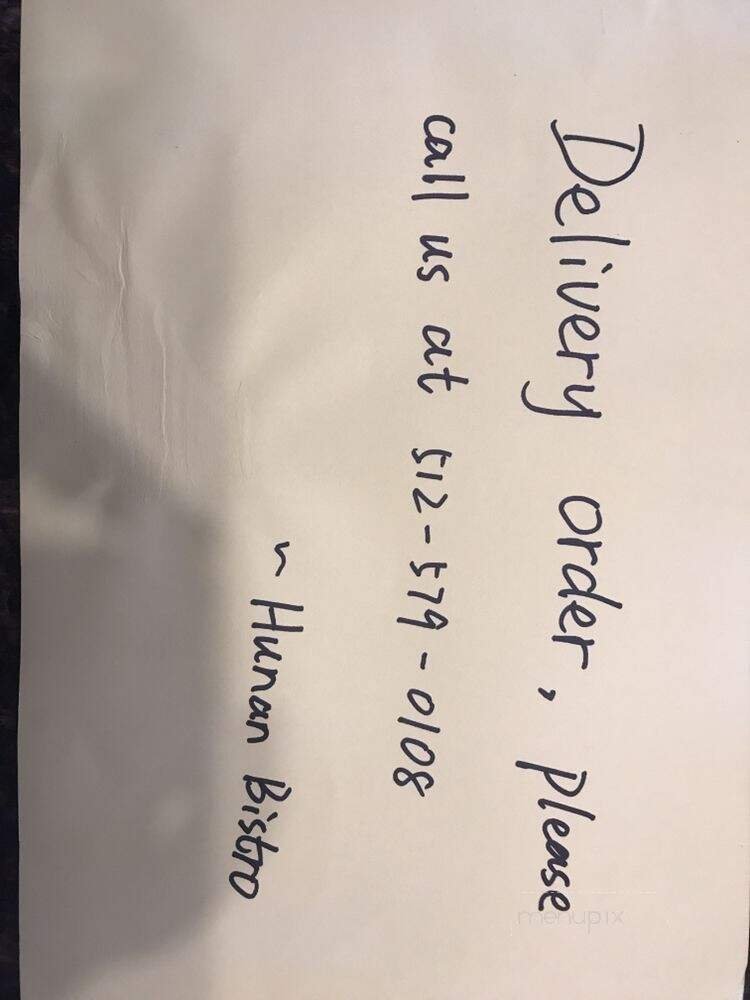 Delivery order, please
call us at 512-579-0108
~ Hunan Bistro
menupix